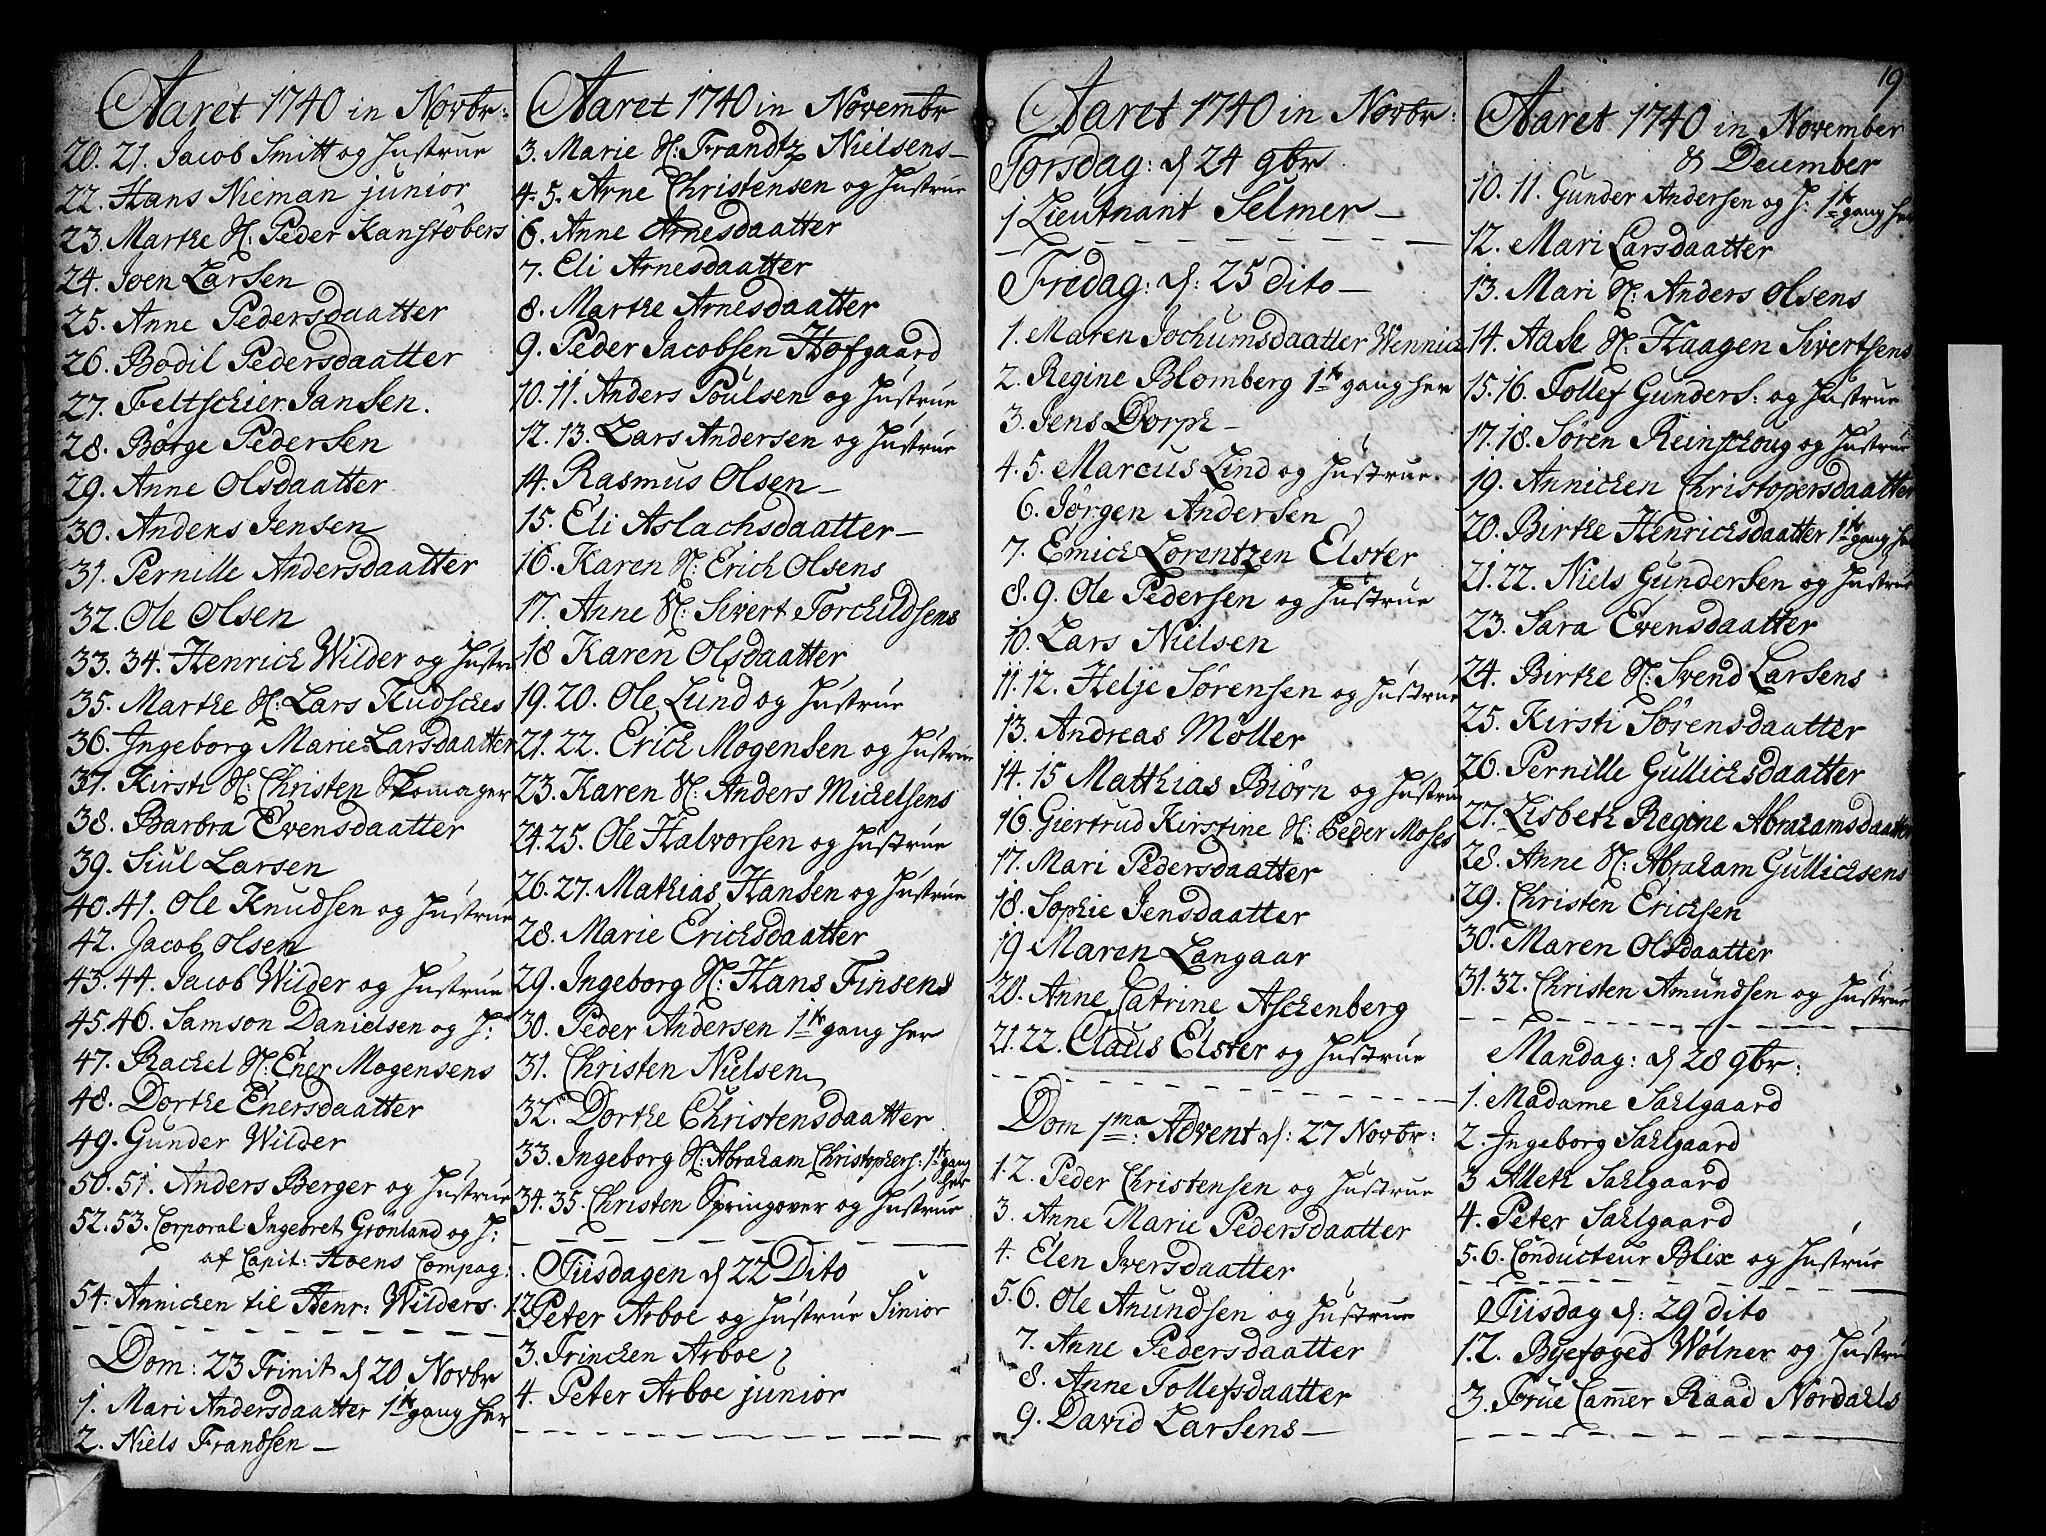 Aaret 1740 in Novbr:
20. 21. Jacob Smitt og Hustrue
22. Hans Nieman junior
23. Marthe H: Peder Kanstøbers
24. Joen Larsen
25. Anne Pedersdaatter
26. Bodil Pedersdaatter
27. Feltschier Jansen.
28. Børge Pedersen
29. Anne Olsdaatter
30. Anders Jensen
31. Pernille Andersdaatter
32. Ole Olsen
33. 34. Henrich Wilder og Hustru
35. Marthe H: Lars
36. Ingeborg Marie Larsdaatter
37. Kirsti H: Christen Skomager
38. Barbra Evensdaatter
39. Siul Larsen
40. 41. Ole Knudsen og Hustrue
42. Jacob Olsen
43. 44. Jacob Wilder og Hustrue
45. 46. Samson Danielsen og H:
47. Rachel H: Ener Mogensens
48. Dorthe Enersdaatter
49. Gunder Wilder
50. 51. Anders Berger og Hustrue
52. 53. Corporal Ingebret Grønland og H:
af Capit: Hoens Compag:
54. Annichen til Henr: Wilders
Dom: 23 Trinit d 20 Novbr
1. Mari Andersdaatter 1te gang her
2. Niels Frandsen —
Aaret 1740 in Novembr
3. Marie H: Frandtz Nielsens —
4. 5. Arne Christensen og Hustrue
6. Anne Arnesdaatter
7. Eli Arnesdaatter
8. Marthe Arnesdaatter
9. Peder Jacobsen Hofgaard
10. 11. Anders Poulsen og Hustrue
12. 13. Lars Andersen og Hustrue
14. Rasmus Olsen —
15. Eli Aslachsdaatter —
16. Karen H: Erich Olsens
17. Anne H: Sivert Torchildsens
18 Karen Olsdaatter
19. 20. Ole Lund og Hustrue
21. 22. Erich Mogensen og Hustrue
23. Karen H: Anders Michelsens
24. 25. Ole Halvorsen og Hustrue
26. 27. Mathias Hansen og Hustrue
28. Marie Erichsdaatter
29. Ingeborg H: Hans Finsens
30. Peder Andersen 1te gang her
31. Christen Nielsen
32. Dorthe Christensdaatter
33. Ingeborg H: Abraham Christophers: 1te gang her
34. 35. Christen Springover og Hustrue
Tiisdagen d 22 Dito
1 2 Peter Arboe og Hustrue Sinior
3. Trinchen Arboe
4. Peter Arboe junior
Aaret 1740 in Novbr:
Torsdag: d 24 9br
1 Lieutnant Selmer —
Fredag: d: 25 dito —
1. Maren Jochumsdaatter Wennich
2. Regine Blomberg 1te gang her
3. Jens Dorph —
4. 5. Marcus Lind og Hustrue
6. Jørgen Andersen
7. Emich Lorentzen Elster
8. 9. Ole Pedersen og Hustrue
10. Lars Nielsen
11. 12. Helje Sørensen og Hustrue
13. Andreas Møller
14. 15 Matthias Biørn og Hustrue
16. Giertrud Kirstine H: Peder Moses
17. Mari Pedersdaatter
18. Sophie Jensdaatter
19 Maren Langaar
20. Anne Catrine Aschenberg
21. 22. Claus Elster og Hustrue
Dom 1ma: Advent d: 27 Novbr:
1. 2. Peder Christensen og Hustrue
3. Anne Marie Pedersdaatter
4. Elen Iversdaatter
5 6. Ole Anundsen og Hustrue
7. Anne Pedersdaatter
8. Anne Tollefsdaatter
9. David Larsens —
19
Aaret 1740 in November
& December
10. 11. Gunder Andersen og H: 1te gang her
12. Mari Larsdaatter
13. Mari H: Anders Olsens
14. Aase H: Haagen Sivertsens
15. 16. Tollef Gunders: og Hustrue
17. 18. Søren Reinschoug og Hustrue
19. Annichen Christopersdaatter
20. Birthe Henrichsdaatter 1te gang her
21. 22. Niels Gundersen og Hustrue
23. Sara Evensdaatter
24. Birthe H: Svend Larsens
25. Kirsti Sørensdaatter
26. Pernille Gullichsdaatter
27. Lisbeth Regine Abrahamsdaatter
28. Anne H: Abraham Gullichsens
29. Christen Erichsen
30. Maren Olsdaatter
31. 32. Christen Amundsen og Hustrue
Mandag: d 28 9br:
1. Madame Sahlgaard
2. Ingeborg Sahlgaard
3 Alleth Sahlgaard
4. Peter Sahlgaard
5. 6. Conducteur Blix og Hustrue
Tiisdag d: 29 dito
1. 2. Byefoged Wølner og Hustru
3. Frue Cammer Raad Nordahls